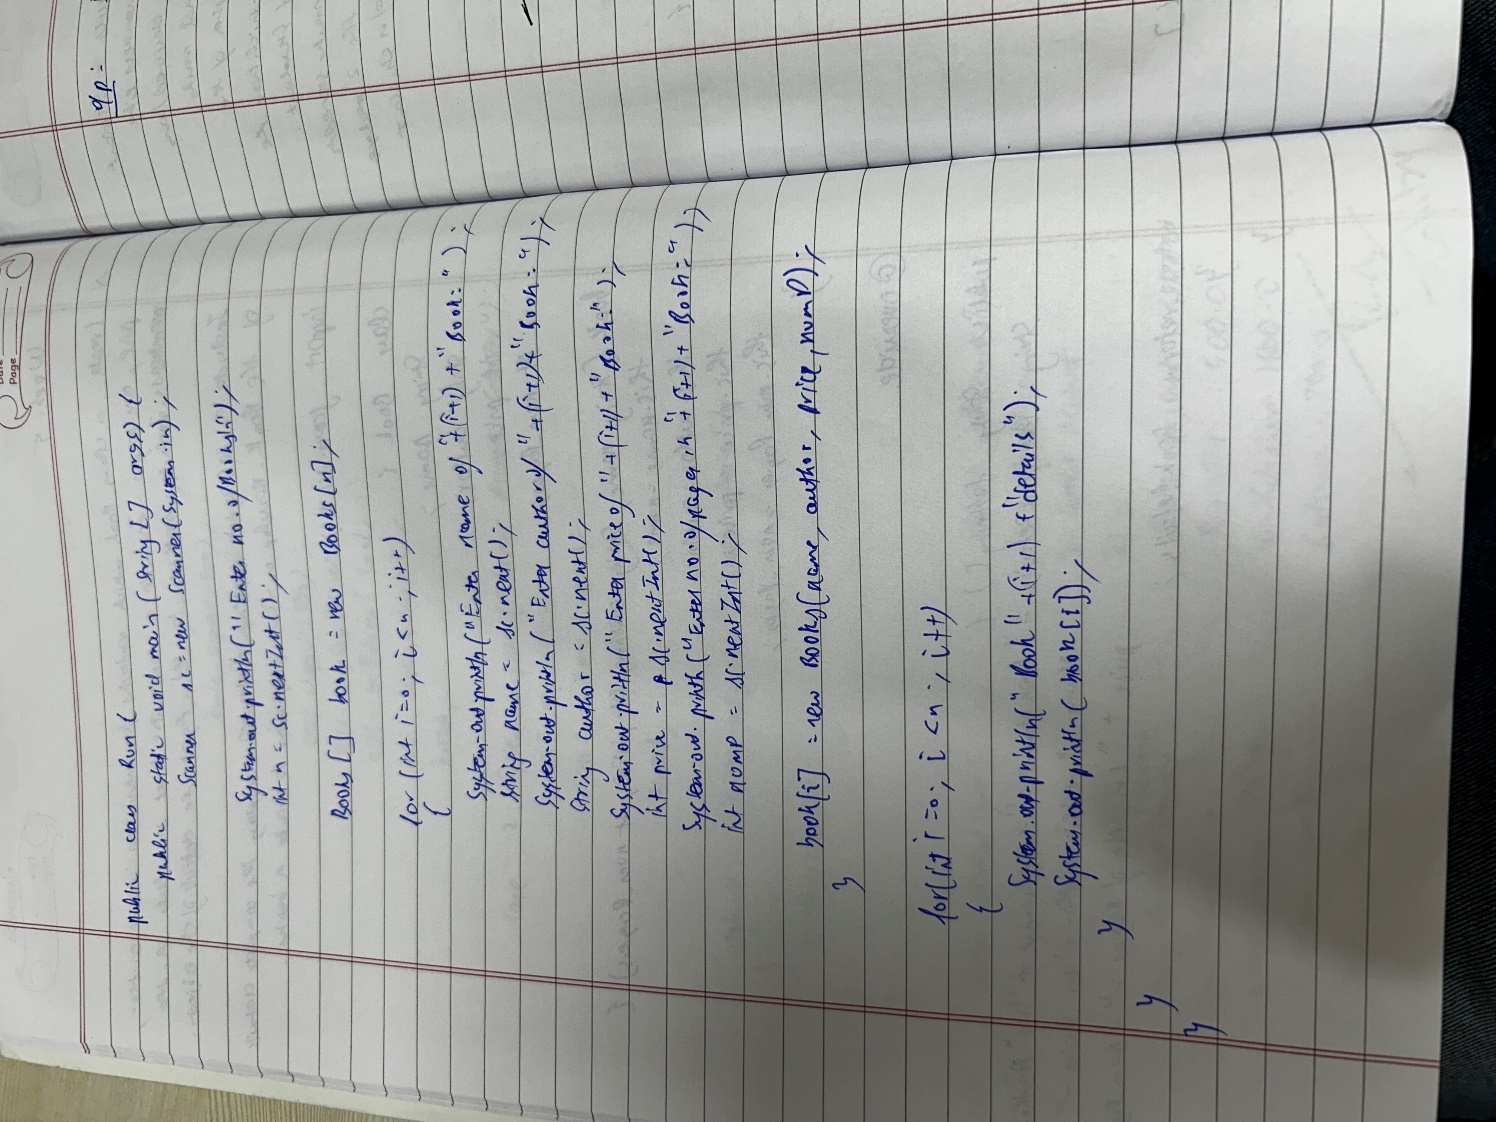 Date
Page
public class Run {
public static void main ( String [] args) {
Scanner sc = new Scanner(System.in);
System.out.println("Enter no. of Books:");
int n = sc.nextInt();
Books[] book = new Books[n];
for (int i=0; i<n; i++)
{
System.out.println("Enter name of "+(i+1) + "Book=");
String name = sc.next();
System.out.println("Enter author of " +(i+1)+ "Book=");
String author = sc.next();
System.out.println("Enter price of "+(i+1)+"Book=");
int price = sc.nextInt();
System.out.println("Enter no. of page in"+(i+1)+"Book=");
int numP = sc.nextInt();
book[i] = new Books(name, author, price, numP);
}
for(int i=0; i<n; i++)
{
System.out.println("Book"+(i+1)+"details");
System.out.println(book[i]);
}
}
}
o/p: